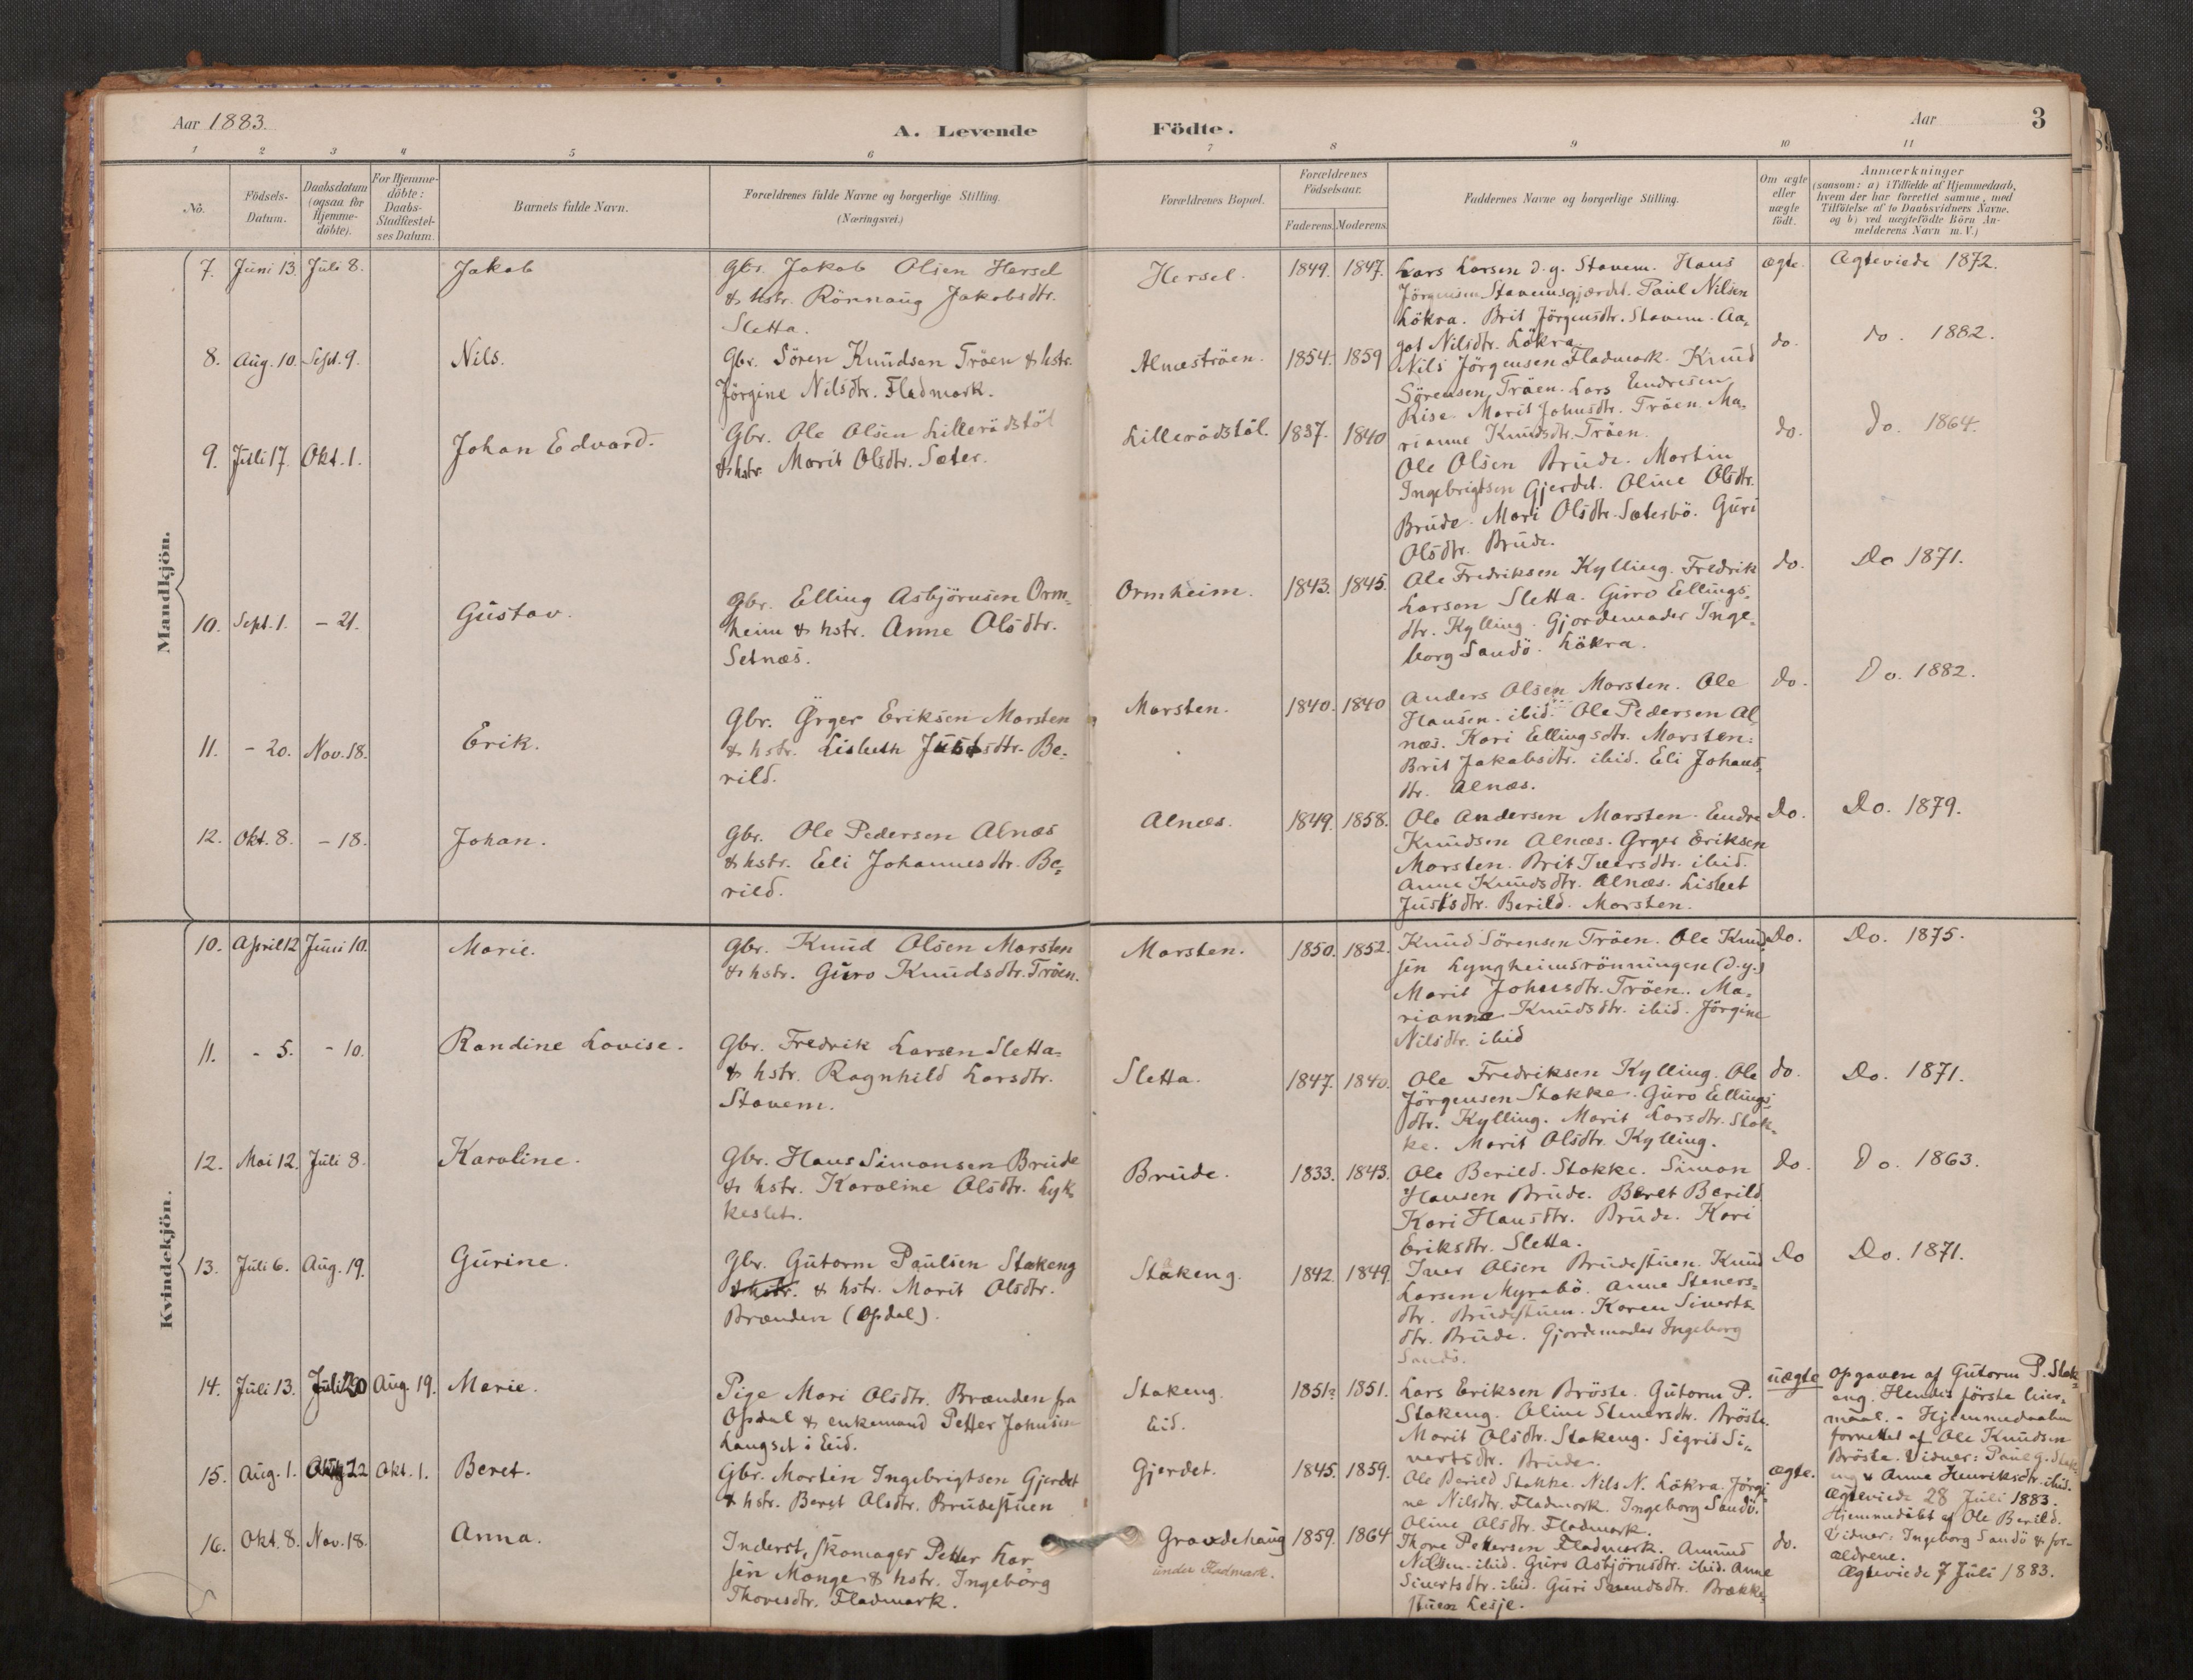 Aar 1883.
A. Levende Födte.
Aar
3
1 2 3 4 5 6 7 8 9 10 11
No.
Födsels-Datum.
Daabsdatum (ogsaa for Hjemme-döbte).
For Hjemme-döbte: Daabs-Stadfæstel-ses Datum.
Barnets fulde Navn.
Forældrenes fulde Navne og borgerlige Stilling.
(Næringsvei.)
Forældrenes Bopæl.
Forældrenes Födselsaar.
Faderens. Moderens.
Faddernes Navne og borgerlige Stilling.
Om ægte eller uægte födt.
Anmærkninger
(saasom: a) i Tilfælde af Hjemmedaab,
hvem der har forrettet samme, med
Tilföielse af to Daabsvidners Navne.
og b) ved uægtefödte Börn An-
melderens Navn m. V.)
Mandkjön.
7. Juni 13. Juli 8. Jakob
Gbr. Jakob Olsen Hersel
& hstr. Rönnaug Jakobsdtr.
Sletta.
Hersel. 1849. 1847.
Lars Larsen d. y. Stavem. Hans
Jörgensen Stavemsgjærdet. Paul Nilsen
Lökra. Brit Jörgensdtr. Stavem. Aa-
got Nilsdtr. Lökra.
ægte. Ægteviede 1872.
8. Aug. 10. Sept. 9. Nils.
Gbr. Sören Knudsen Tröen & hstr.
Jörgine Nilsdtr. Fladmark.
Alneströen. 1854. 1859
Nils Jörgensen Fladmark. Knud
Sörensen Tröen. Lars Endresen
Rise. Marit Johnsdtr. Tröen. Ma-
rianne Knudsdtr. Tröen.
do. do. 1882.
9. Juli 17. Okt. 1. Johan Edvard.
Gbr. Ole Olsen Lillerödstöl
& hstr. Marit Olsdtr. Sæter.
Lillerödstöl. 1837. 1840
Ole Olsen Brude. Martin
Ingebrigtsen Gjerdet. Oline Olsdtr.
Brude. Mari Olsdtr. Sætersbö. Guri
Olsdtr. Brude.
do. Do. 1864.
10. Sept. 1. - 21. Gustav.
Gbr. Elling Asbjörnsen Orm-
heim & hstr. Anne Olsdtr.
Setnæs.
Ormheim. 1843. 1845.
Ole Fredriksen Kylling. Fredrik
Larsen Sletta. Guro Ellings-
dtr. Kylling. Gjordemoder Inge-
borg Sandö. Lökra.
do. Do 1871.
11. - 20. Nov. 18. Erik.
Gbr. Örger Eriksen Marsten
& hstr. Lisbeth Justsdtr. Be-
rild.
Marsten. 1840. 1840
Anders Olsen Marsten. Ole
Hansen. ibid. Ole Pedersen Al-
næs. Kari Ellingsdtr. Marsten.
Brit Jakobsdtr. ibid. Eli Johans-
dtr. Alnæs.
do. Do. 1882.
12. Okt. 8. - 18. Johan.
Gbr. Ole Pedersen Alnæs
& hstr. Eli Johannesdtr. Be-
rild.
Alnæs. 1849. 1858.
Ole Andersen Marsten. Endre
Knudsen Alnæs. Örger Eriksen
Marsten. Brit Iversdtr. ibid.
Anne Knudsdtr. Alnæs. Lisbet
Justsdtr. Berild. Marsten.
Do. Do. 1879.
Kvindekjön.
10. April 12 Juni 10. Marie.
Gbr. Knud Olsen Marsten
& hstr. Guro Knudsdtr. Tröen.
Marsten. 1850. 1852.
Knud Sörensen Tröen. Ole Knud-
sen Lyngheimsrönningen (d.y.)
Marit Johnsdtr. Tröen. Ma-
rianne Knudsdtr. ibid. Jörgine
Nilsdtr. ibid
Do. Do. 1875.
11. - 5. - 10. Randine Lovise.
Gbr. Fredrik Larsen Sletta-
& hstr. Ragnhild Larsdtr.
Stavem.
Sletta. 1847. 1840.
Ole Fredriksen Kylling. Ole
Jörgensen Stokke. Guro Ellings-
dtr. Kylling. Marit Larsdtr. Stok-
ke. Marit Olsdtr. Kylling.
do. Do. 1871.
12. Mai 12. Juli 8. Karoline.
Gbr. Hans Simonsen Brude
& hstr. Karoline Olsdtr. Lyk-
keslet.
Brude. 1833. 1843.
Ole Berild. Stokke. Simon
Hansen Brude. Beret Berild
Kari Hansdtr. Brude. Kari
Eriksdtr. Sletta.
do. Do. 1863.
13. Juli 6. Aug. 19. Gurine.
Gbr. Gutorm Paulsen Stakeng
& hstr. & hstr. Marit Olsdtr.
Brænden (Opdal).
Stakeng. 1842. 1849.
Iver Olsen Brudestuen. Knud
Larsen Myrabö. Anne Steners-
dtr. Brudestuen. Karen Siverts-
dtr. Brude. Gjordemoder Ingeborg
Sandö.
Do Do. 1871.
14. Juli 13. Juli 20 Aug. 19. Marie.
Pige Mari Olsdtr. Brænden fra
Opdal & enkemand Petter Johnsen
Langset i Eid.
Stakeng.
Eid.
1851? 1851.
Lars Eriksen Bröste. Gutorm P.
Stakeng. Oline Stenersdtr. Bröste.
Marit Olsdtr. Stakeng. Sigrid Si-
vertsdtr. Brude.
uægte
Opgaven af Gutorm P. Stak-
eng. Hendes förste leier-
maal. - Hjemmedaaben
forrettet af Ole Knudsen
Bröste. Vidner: Paul G. Stak-
eng & Anne Henriksdtr. ibid.
15. Aug. 1. Aug 12 Okt. 1. Beret.
Gbr. Martin Ingebrigtsen Gjerdet
& hstr. Beret Olsdtr. Brudestuen
Gjerdet. 1845. 1859.
Ole Berild Stokke. Nils N. Lökra. Jörgi-
ne Nilsdtr. Fladmark. Ingeborg Sandö.
Oline Olsdtr. Fladmark.
ægte.
Ægteviede 28 Juli 1883.
Hjemmedöbt af Ole Berild.
Vidner: Ingeborg Sandö & for-
ældrene.
16. Okt. 8. Nov. 18. Anna.
Inderst, skomager Petter Lar-
sen Monge & hstr. Ingeborg
Thoresdtr. Fladmark.
Gravdehaug
under Fladmark.
1859. 1864
Thore Pettersen Fladmark. Amund
Nilsen. ibid. Guro Asbjörnsdtr. ibid. Anne
Sivertsdtr. ibid. Guri Svendsdtr. Brække-
stuen Lesje.
do. Ægteviede 7 Juli 1883.